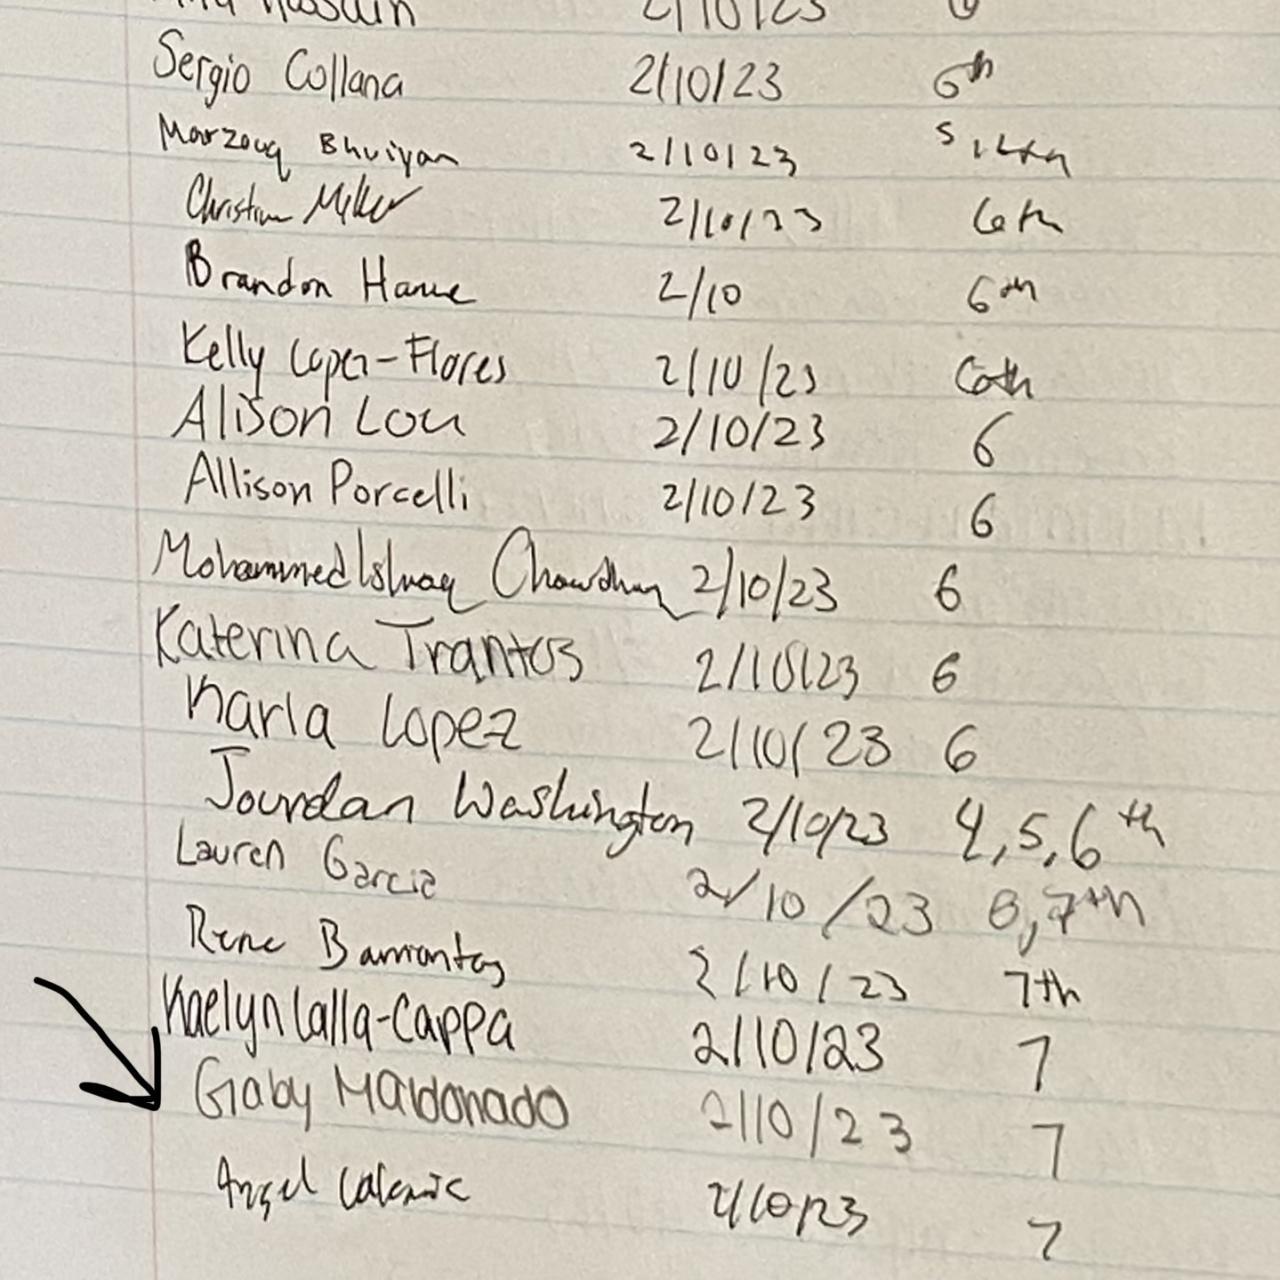 Hussain 2/10/23
Sergio Collana 2/10/23 6th
Marzouq Bhuiyan 2/10/23 Sixth
Christian Miller 2/10/23 6th
Brandon 2/10 6th
Kelly Lopez-Flores 2/10/23 6th
Alison Lou 2/10/23 6
Allison Porcelli 2/10/23 6
Mohammed Ishaq Chowdhury 2/10/23 6
Katerina Trantos 2/10/23 6
Karla Lopez 2/10/23 6
Jourdan Washington 2/10/23 4,5,6th
Lauren Garcia 2/10/23 6,7th
Rene 2/10/23 7th
Kaelyn Lalla-Cappa 2/10/23 7
Gaby Maldonado 2/10/23 7
Angel 2/10/23 7